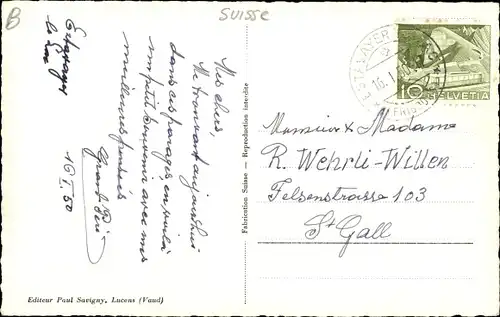 B
SUISSE
Estavayer
le Lac
16 I. 50
Mes chers,
Me trouvant aujourd'hui
dans ces parages en voilà
un petit souvenir avec mes
meilleures pensées
Grand-Père
Fabrication Suisse — Reproduction interdite
ESTAVAYER
16. I.
HELVETIA
10
Monsieur & Madame
R. Wehrli-Willen
Felsenstrasse 103
St Gall
Editeur Paul Savigny, Lucens (Vaud)